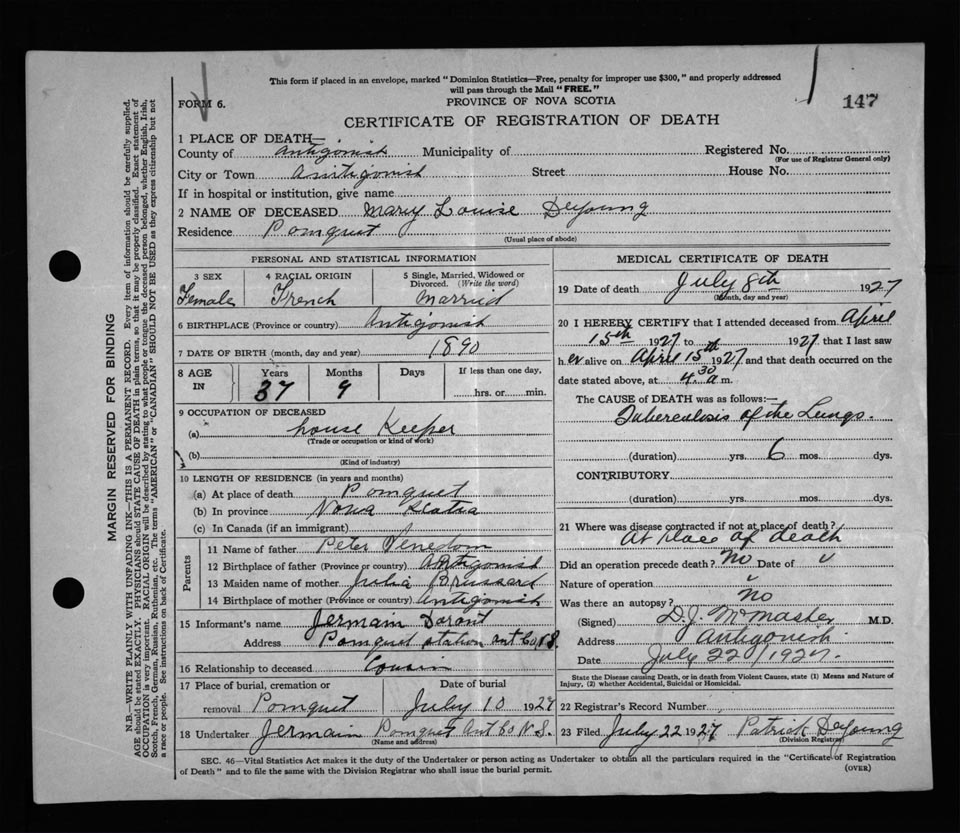 This form if placed in an envelope, marked "Dominion Statistics—Free, penalty for improper use $300," and properly addressed
will pass through the Mail "FREE."
FORM 6.
PROVINCE OF NOVA SCOTIA
147
CERTIFICATE OF REGISTRATION OF DEATH
1 PLACE OF DEATH—
County of Antigonish Municipality of Registered No.
(For use of Registrar General only)
City or Town Antigonish Street House No.
If in hospital or institution, give name
2 NAME OF DECEASED Mary Louise DeYoung
Residence Pomquet
(Usual place of abode)
PERSONAL AND STATISTICAL INFORMATION
3 SEX 4 RACIAL ORIGIN 5 Single, Married, Widowed or
Divorced. (Write the word)
Female French Married
6 BIRTHPLACE (Province or country) Antigonish
7 DATE OF BIRTH (month, day and year) 1890
8 AGE IN Years Months Days If less than one day.
37 9 hrs. or min.
9 OCCUPATION OF DECEASED
(a) House Keeper
(Trade or occupation or kind of work)
(b)
(Kind of industry)
10 LENGTH OF RESIDENCE (in years and months)
(a) At place of death Pomquet
(b) In province Nova Scotia
(c) In Canada (if an immigrant)
Parents
11 Name of father Peter
12 Birthplace of father (Province or country) Antigonish
13 Maiden name of mother Julia
14 Birthplace of mother (Province or country) Antigonish
15 Informant's name Jermain
Address Pomquet station Ant Co N.S.
16 Relationship to deceased Cousin
17 Place of burial, cremation or Date of burial
removal Pomquet July 10 1927
18 Undertaker Jermain Pomquet Ant Co N.S.
(Name and address)
MEDICAL CERTIFICATE OF DEATH
19 Date of death July 8th 1927
(Month, day and year)
20 I HEREBY CERTIFY that I attended deceased from April
15th 1927 to 1927 that I last saw
h er alive on April 15th 1927 and that death occurred on the
date stated above, at 4.30 a m.
The CAUSE of DEATH was as follows:—
Tuberculosis of the Lungs.
(duration) yrs. 6 mos. dys.
CONTRIBUTORY
(duration) yrs. mos. dys.
21 Where was disease contracted if not at place of death?
At place of death
Did an operation precede death? No Date of
Nature of operation
Was there an autopsy? No
(Signed) D.J. McMaster M.D.
Address Antigonish
Date July 22/1927
State the Disease causing Death, or in death from Violent Causes, state (1) Means and Nature of
Injury, (2) whether Accidental, Suicidal or Homicidal.
22 Registrar's Record Number
23 Filed July 22 1927 Patrick DeYoung
(Division Registrar)
SEC. 46—Vital Statistics Act makes it the duty of the Undertaker or person acting as Undertaker to obtain all the particulars required in the "Certificate of Registration
of Death" and to file the same with the Division Registrar who shall issue the burial permit.
(OVER)
MARGIN RESERVED FOR BINDING
N.B.—WRITE PLAINLY WITH UNFADING INK—THIS IS A PERMANENT RECORD. Every item of information should be carefully supplied.
AGE should be stated EXACTLY. PHYSICIANS should STATE CAUSE OF DEATH in plain terms, so that it may be properly classified. Exact statement of
OCCUPATION is very important. RACIAL ORIGIN will be described by stating to what people or tongue the deceased person belonged, whether English, Irish,
Scotch, French, German, Russian, Ruthenian, etc. The terms "AMERICAN" or "CANADIAN" SHOULD NOT BE USED as they express citizenship but not
a race or people. See instructions on back of Certificate.